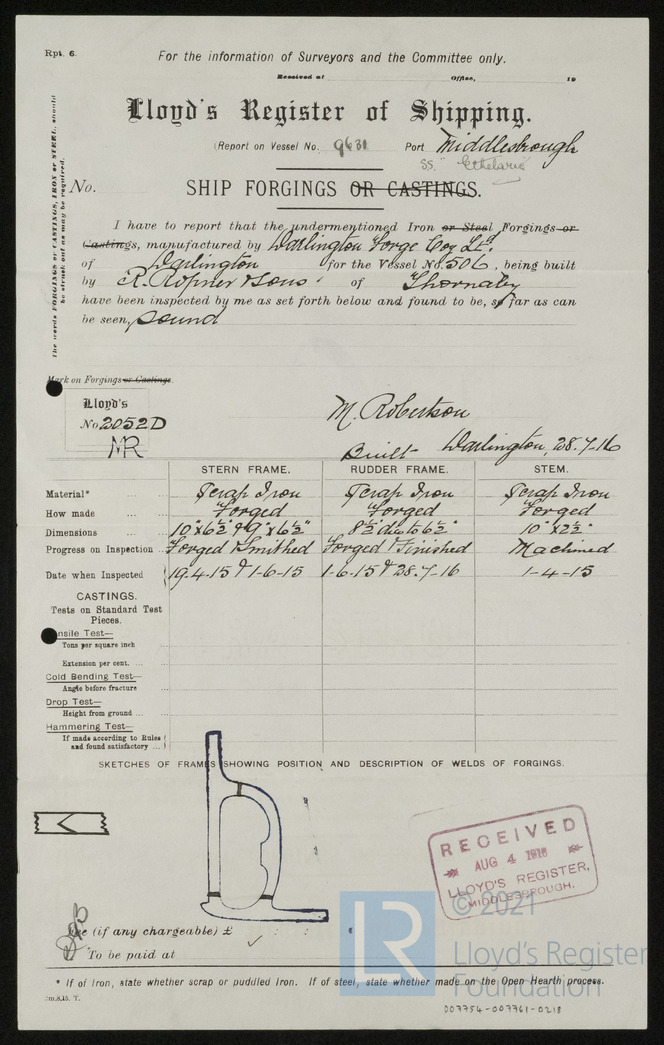 Rpt. 6.
For the information of Surveyors and the Committee only.
Received at Office, 19
Lloyd's Register of Shipping.
(Report on Vessel No. 9631 Port Middlesbrough
SS. Ethelaric
No. SHIP FORGINGS OR CASTINGS.
The words FORGINGS or CASTINGS, IRON or STEEL, should be struck out as may be required.
I have to report that the undermentioned Iron or Steel Forgings or
Castings, manufactured by Darlington Forge Coy Ltd
of Darlington for the Vessel No. 506, being built
by R. Ropner & Sons of Thornaby
have been inspected by me as set forth below and found to be, so far as can
be seen, sound
Mark on Forgings or Castings.
Lloyd's
No 2052D
MR
M. Robertson
Built Darlington, 28.7.16
STERN FRAME. RUDDER FRAME. STEM.
Material* Scrap Iron Scrap Iron Scrap Iron
How made Forged Forged Forged
Dimensions 10"x6½" & 9"x6½" 8½" dia to 6½" 10"x2½"
Progress on Inspection Forged & Smithed Forged & Finished Machined
Date when Inspected 19.4.15 & 1-6-15 1-6.15 & 28.7-16 1-4-15
CASTINGS.
Tests on Standard Test
Pieces.
nsile Test—
Tons per square inch
Extension per cent.
Cold Bending Test—
Angle before fracture
Drop Test—
Height from ground
Hammering Test—
If made according to Rules
and found satisfactory
SKETCHES OF FRAMES SHOWING POSITION AND DESCRIPTION OF WELDS OF FORGINGS.
RECEIVED
AUG 4 1916
LLOYD'S REGISTER,
MIDDLESBROUGH.
Fee (if any chargeable) £ : :
To be paid at
LR
© 2021
Lloyd's Register
Foundation
* If of Iron, state whether scrap or puddled Iron. If of steel, state whether made on the Open Hearth process.
2m.8.15. T.
007754-007761-0218